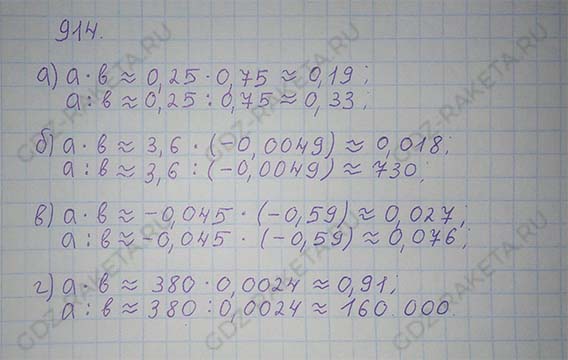 914.
а) а · в ≈ 0,25 · 0,75 ≈ 0,19;
а : в ≈ 0,25 : 0,75 ≈ 0,33;
б) а · в ≈ 3,6 · (-0,0049) ≈ 0,018;
а : в ≈ 3,6 : (-0,0049) ≈ 730;
в) а · в ≈ -0,045 · (-0,59) ≈ 0,027;
а : в ≈ -0,045 · (-0,59) ≈ 0,076;
г) а · в ≈ 380 · 0,0024 ≈ 0,91;
а : в ≈ 380 : 0,0024 ≈ 160.000
GDZ-RAKETA.RU
GDZ-RAKETA.RU
GDZ-RAKETA.RU
GDZ-RAKETA.RU
GDZ-RAKETA.RU
GDZ-RAKETA.RU